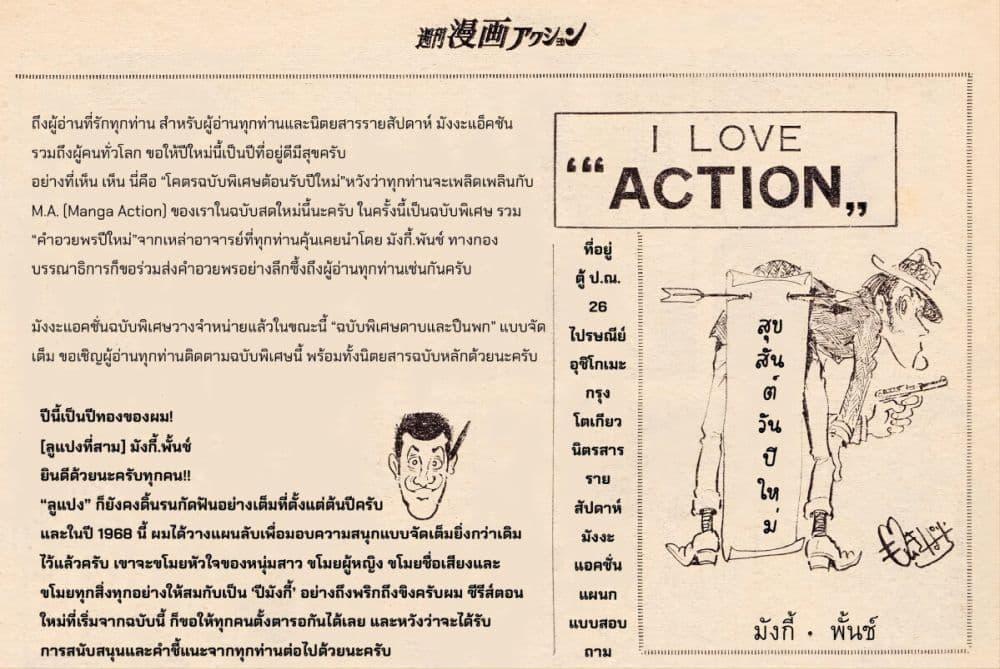 週刊漫画アクション
ถึงผู้อ่านที่รักทุกท่าน สำหรับผู้อ่านทุกท่านและนิตยสารรายสัปดาห์ มังงะแอ็คชัน
รวมถึงผู้คนทั่วโลก ขอให้ปีใหม่นี้เป็นปีที่อยู่ดีมีสุขครับ
อย่างที่เห็น เห็น นี่คือ “โคตรฉบับพิเศษต้อนรับปีใหม่”หวังว่าทุกท่านจะเพลิดเพลินกับ
M.A. (Manga Action) ของเราในฉบับสดใหม่นี้นะครับ ในครั้งนี้เป็นฉบับพิเศษ รวม
“คำอวยพรปีใหม่”จากเหล่าอาจารย์ที่ทุกท่านคุ้นเคยนำโดย มังกี้.พันช์ ทางกอง
บรรณาธิการก็ขอร่วมส่งคำอวยพรอย่างลึกซึ้งถึงผู้อ่านทุกท่านเช่นกันครับ
มังงะแอคชั่นฉบับพิเศษวางจำหน่ายแล้วในขณะนี้ “ฉบับพิเศษดาบและปืนพก” แบบจัด
เต็ม ขอเชิญผู้อ่านทุกท่านติดตามฉบับพิเศษนี้ พร้อมทั้งนิตยสารฉบับหลักด้วยนะครับ
ปีนี้เป็นปีทองของผม!
[ลูแปงที่สาม] มังกี้.พั้นช์
ยินดีด้วยนะครับทุกคน!!
“ลูแปง” ก็ยังคงดิ้นรนกัดฟันอย่างเต็มที่ตั้งแต่ต้นปีครับ
และในปี 1968 นี้ ผมได้วางแผนลับเพื่อมอบความสนุกแบบจัดเต็มยิ่งกว่าเดิม
ไว้แล้วครับ เขาจะขโมยหัวใจของหนุ่มสาว ขโมยผู้หญิง ขโมยชื่อเสียงและ
ขโมยทุกสิ่งทุกอย่างให้สมกับเป็น ‘ปีมังกี้’ อย่างถึงพริกถึงขิงครับผม ซีรีส์ตอน
ใหม่ที่เริ่มจากฉบับนี้ ก็ขอให้ทุกคนตั้งตารอกันได้เลย และหวังว่าจะได้รับ
การสนับสนุนและคำชี้แนะจากทุกท่านต่อไปด้วยนะครับ
I LOVE
“‘ACTION„
ที่อยู่
ตู้ ป.ณ.
26
ไปรษณีย์
อุชิโกเมะ
กรุง
โตเกียว
นิตรสาร
ราย
สัปดาห์
มังงะ
แอคชั่น
แผนก
แบบสอบ
ถาม
สุข
สัน
ต์
วัน
ปี
ให
ม่
มังกี้ ・ พั้นช์